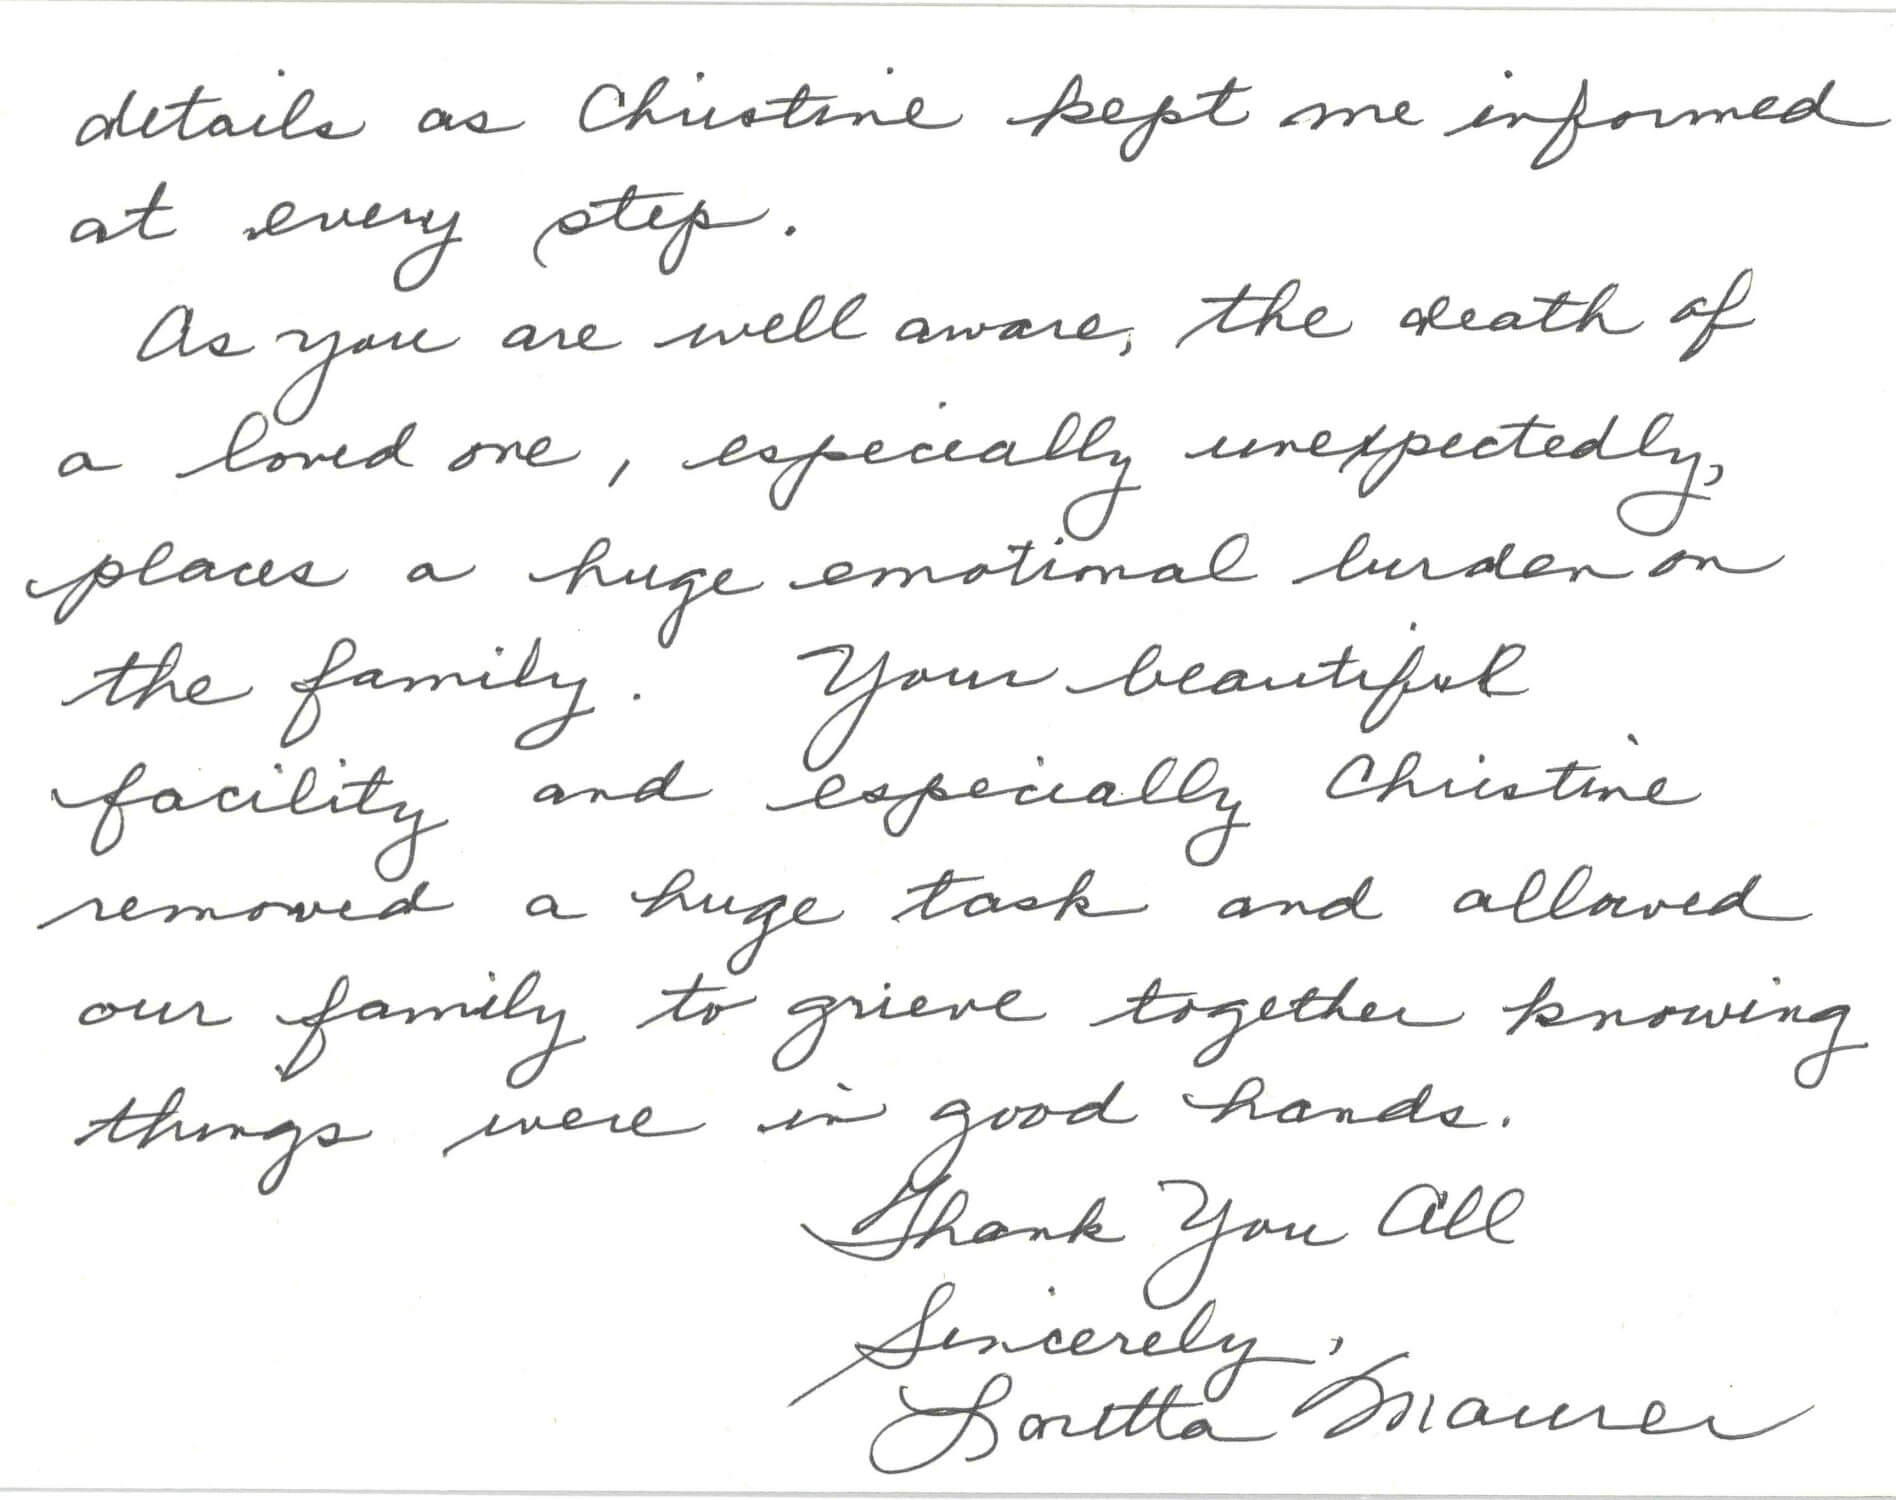 details as Christine kept me informed
at every step.
As you are well aware, the death of
a loved one, especially unexpectedly,
places a huge emotional burden on
the family. Your beautiful
facility and especially Christine
removed a huge task and allowed
our family to grieve together knowing
things were in good hands.
Thank You All
Sincerely,
Loretta Maurer